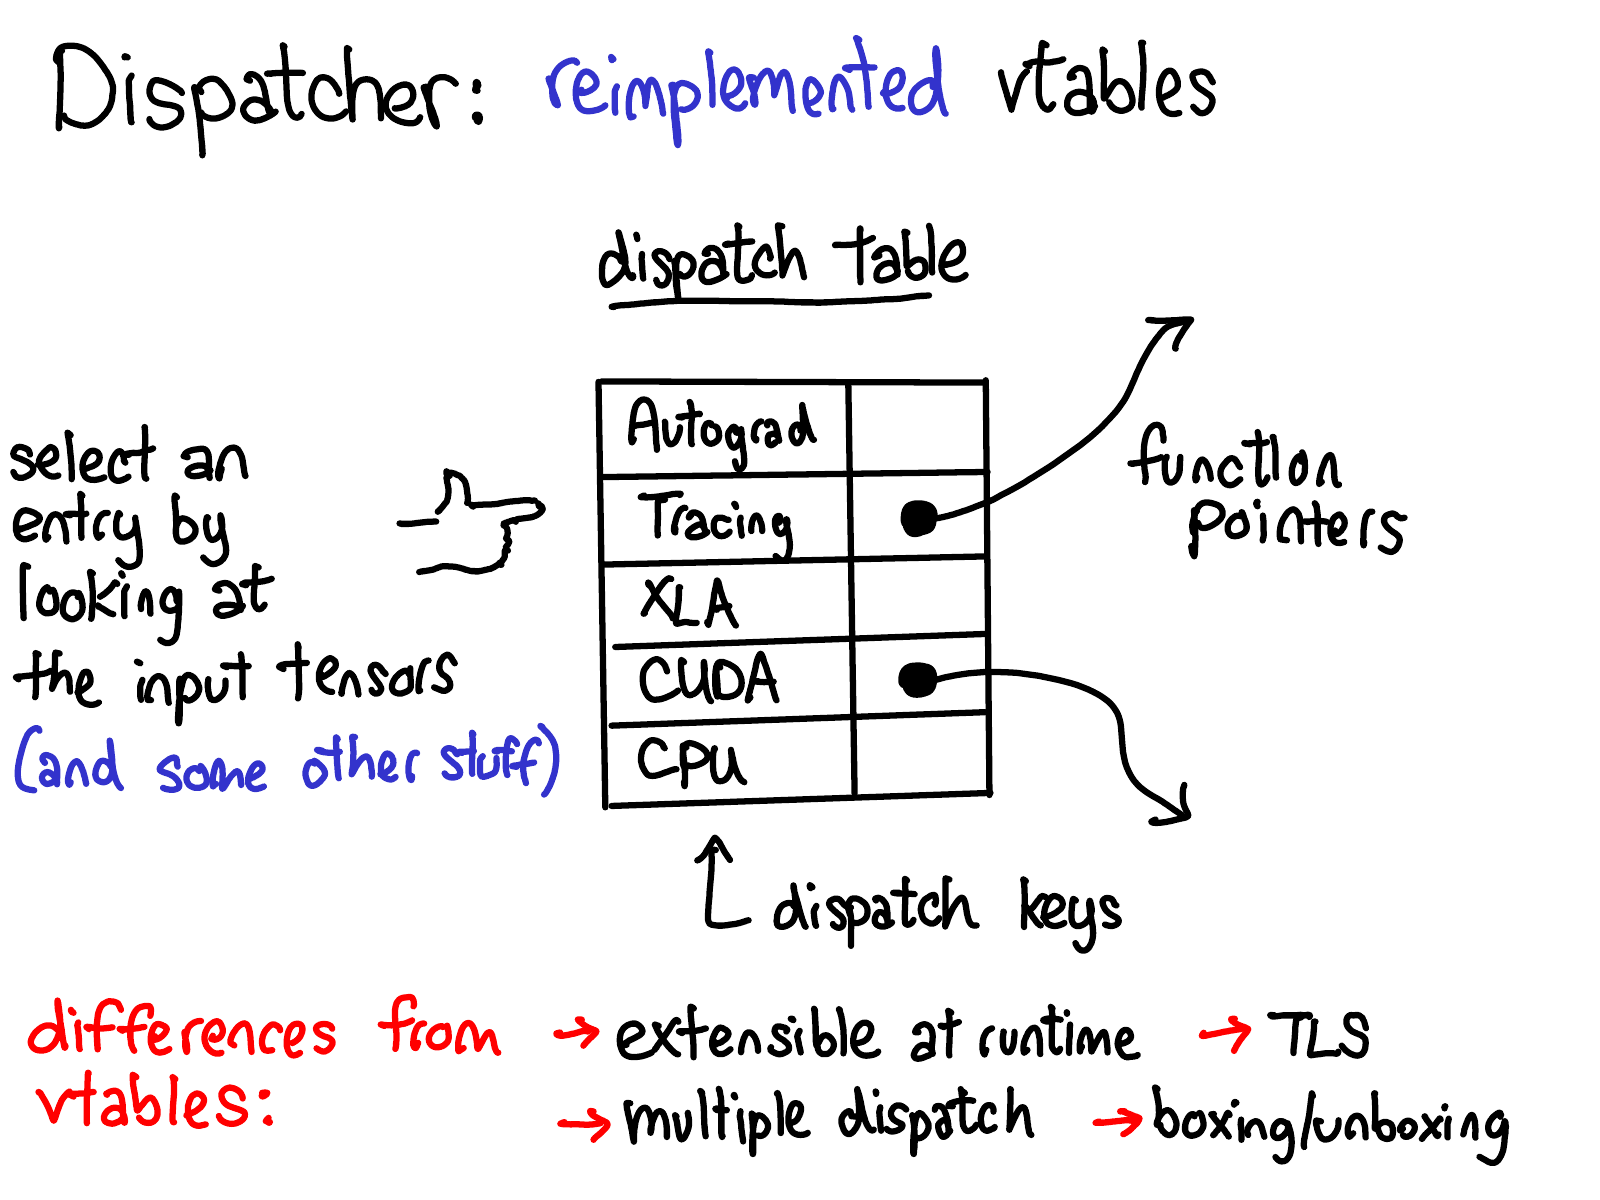 Dispatcher: reimplemented vtables
dispatch table
select an
entry by
looking at
the input tensors
(and some other stuff)
Autograd
Tracing
XLA
CUDA
CPU
function
pointers
dispatch keys
differences from
vtables:
→ extensible at runtime → TLS
→ multiple dispatch → boxing/unboxing